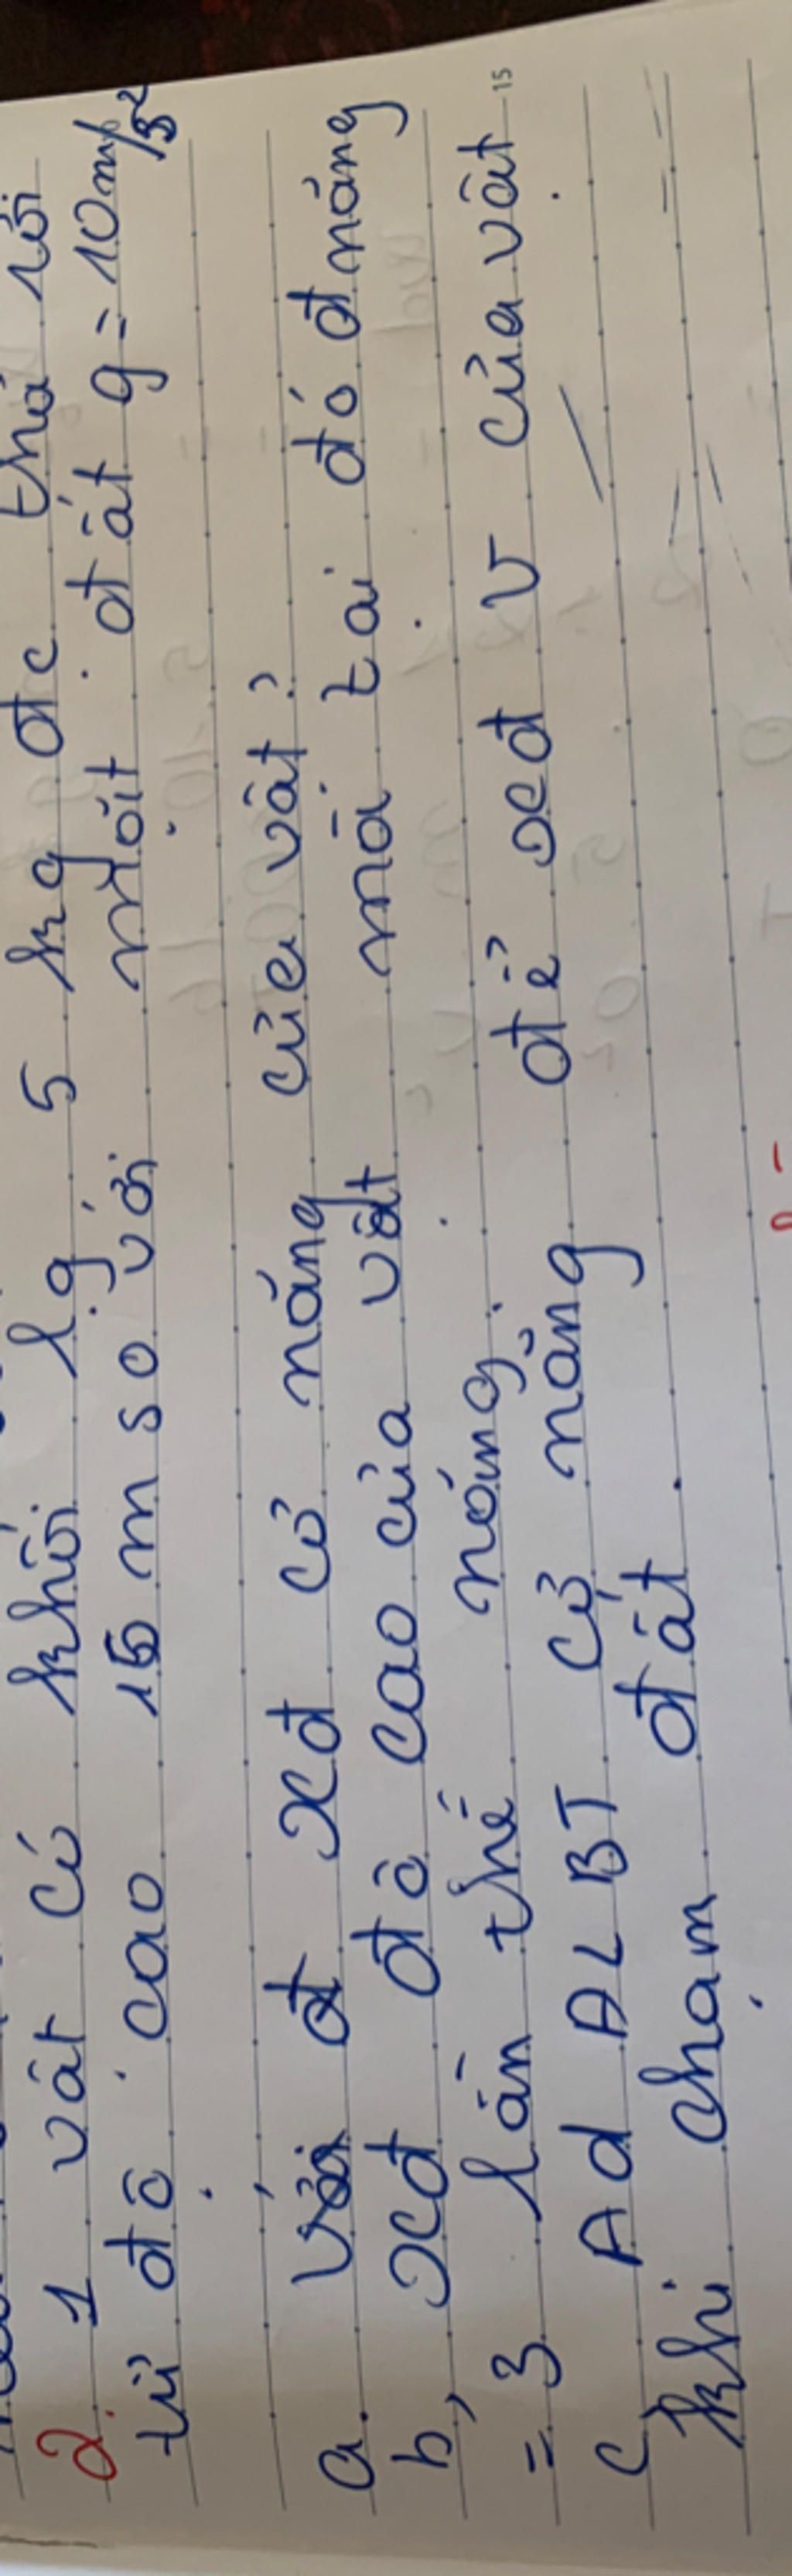 2. 1 vật có khối lg 5 kg đc thả rơi
từ độ cao 15 m so với mặt đất g = 10 m/s²
a. xđ cơ năng của vật?
b, xđ độ cao của vật mà tại đó đ năng
= 3 lần thế năng.
c, Ad ALBT cơ năng để xđ v của vật
khi chạm đất.
15